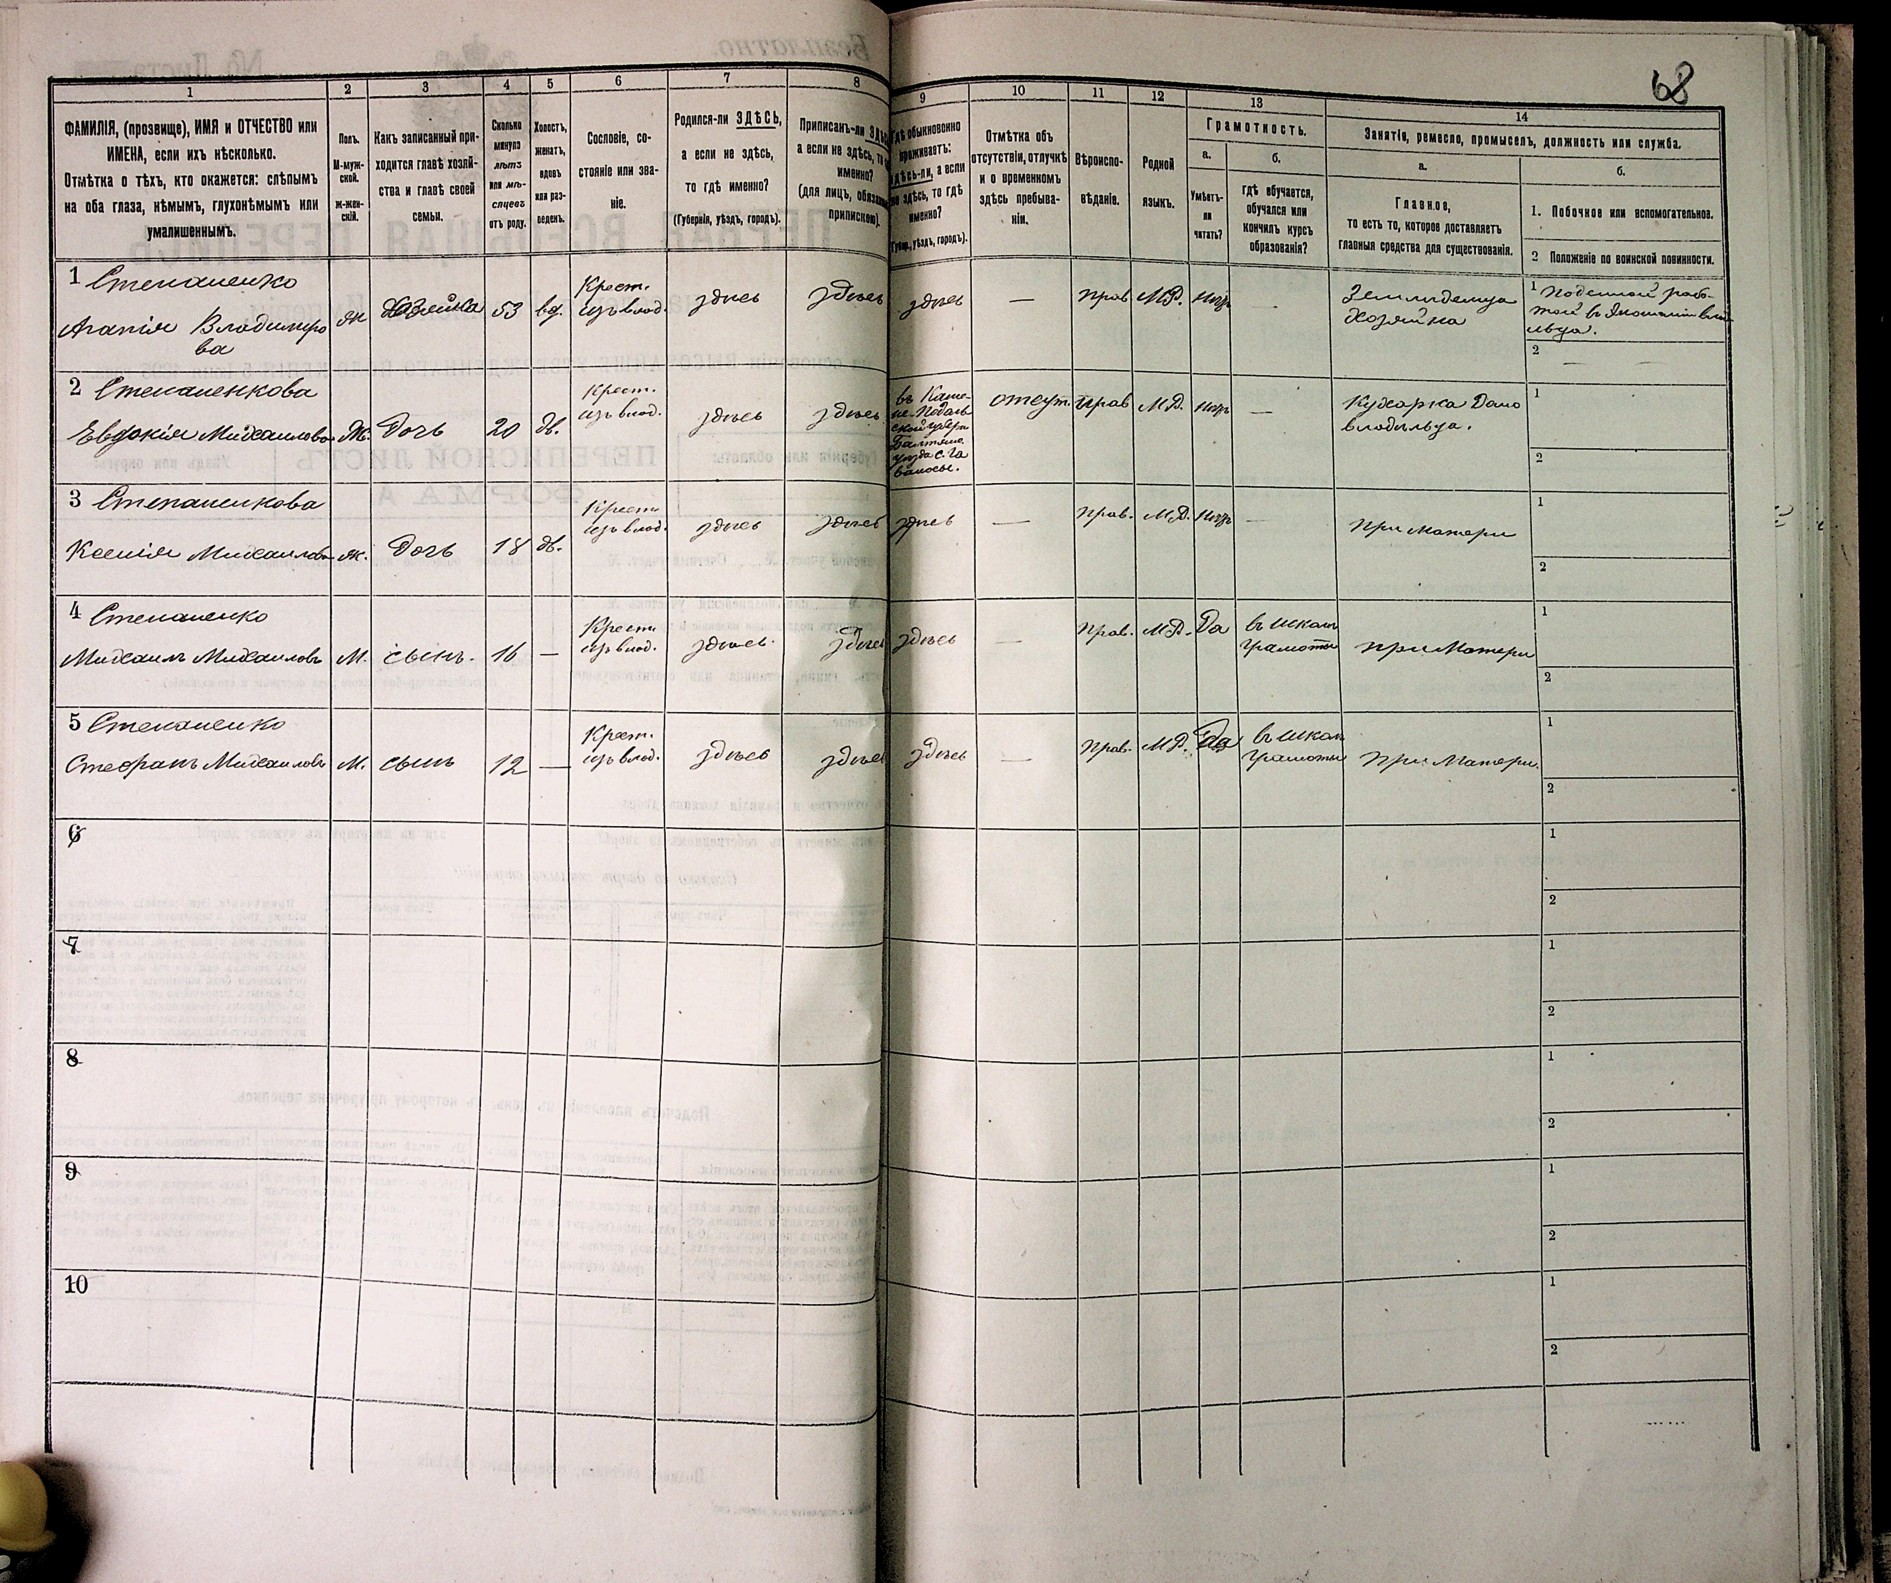 68
1
2
3
4
5
6
7
8
9
10
11
12
13
14
ФАМИЛІЯ, (прозвище), ИМЯ и ОТЧЕСТВО или
ИМЕНА, если ихъ нѣсколько.
Отмѣтка о тѣхъ, кто окажется: слѣпымъ
на оба глаза, нѣмымъ, глухонѣмымъ или
умалишеннымъ.
Полъ.
М-муж-
ской.
ж-жен-
скій.
Какъ записанный при-
ходится главѣ хозяй-
ства и главѣ своей
семьи.
Сколько
минуло
лѣтъ
или мѣ-
сяцевъ
отъ роду.
Холостъ,
женатъ,
вдовъ
или раз-
веденъ.
Сословіе, со-
стояніе или зва-
ніе.
Родился-ли ЗДѢСЬ,
а если не здѣсь,
то гдѣ именно?
(Губернія, уѣздъ, городъ).
Приписанъ-ли
а если не здѣсь, то
именно?
(для лицъ,
припискою).
Гдѣ обыкновенно
проживаетъ:
здѣсь-ли, а если
не здѣсь, то гдѣ
именно?
уѣздъ, городъ).
Отмѣтка объ
отсутствіи, отлучкѣ
и о временномъ
здѣсь пребыва-
ніи.
Вѣроиспо-
вѣданіе.
Родной
языкъ.
Грамотность.
а.
Умѣетъ-
ли
читать?
б.
гдѣ обучается,
обучался или
кончилъ курсъ
образованія?
Занятія, ремесло, промыселъ, должность или служба.
а.
Главное,
то есть то, которое доставляетъ
главныя средства для существованія.
б.
1. Побочное или вспомогательное.
2 Положеніе по воинской повинности.
1 Степаненко
Агапія Владимиро
ва
ж
хозяйка
53
вд.
Крест.
изъ влад.
здѣсь
здѣсь
здѣсь
—
прав
М.Р.
нѣтъ
Земледелица
хозяйка
1 Поденной рабо-
той въ Экономіи влад
ельца.
2 —
2 Степаненкова
Евдокія Михаилова
Ж.
дочь
20
дв.
Крест.
изъ влад.
здѣсь
здѣсь
отсут.
прав
М.Р.
нѣтъ
—
Кухарка Домо
владѣльца.
1
2
3 Степаненкова
Ксенія Михаилова
ж.
дочь
18
дв.
Крест
изъ влад.
здѣсь
здѣсь
здѣсь
—
прав.
М.Р.
нѣтъ
—
при матери
1
2
4 Степаненко
Михаилъ Михаиловъ
М.
сынъ.
16
—
Крест.
изъ влад.
здѣсь.
здѣсь
здѣсь
—
прав.
М.Р.
Да
въ школѣ
грамоты
при матери
1
2
5 Степаненко
Стефанъ Михаиловъ
М.
сынъ
12
—
Крест.
изъ влад.
здѣсь
здѣсь
здѣсь
—
прав.
М.Р.
Да
въ школѣ
грамоты
при матери.
1
2
6
1
2
7
1
2
8
1
2
9
1
2
10
1
2